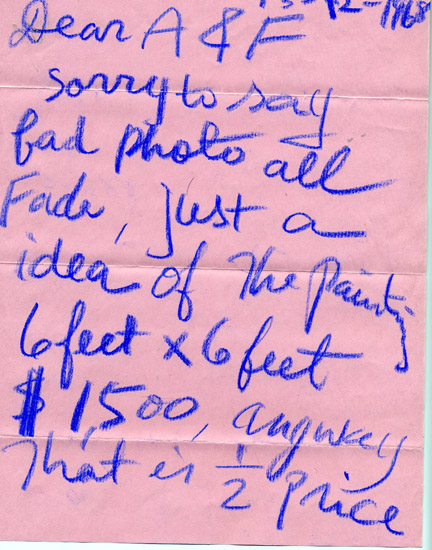 -1968
Dear A & F
sorry to say
bad photo all
Fade, just a
idea of The Painting
6 feet x 6 feet
$1,500, anyway
That is 1/2 price